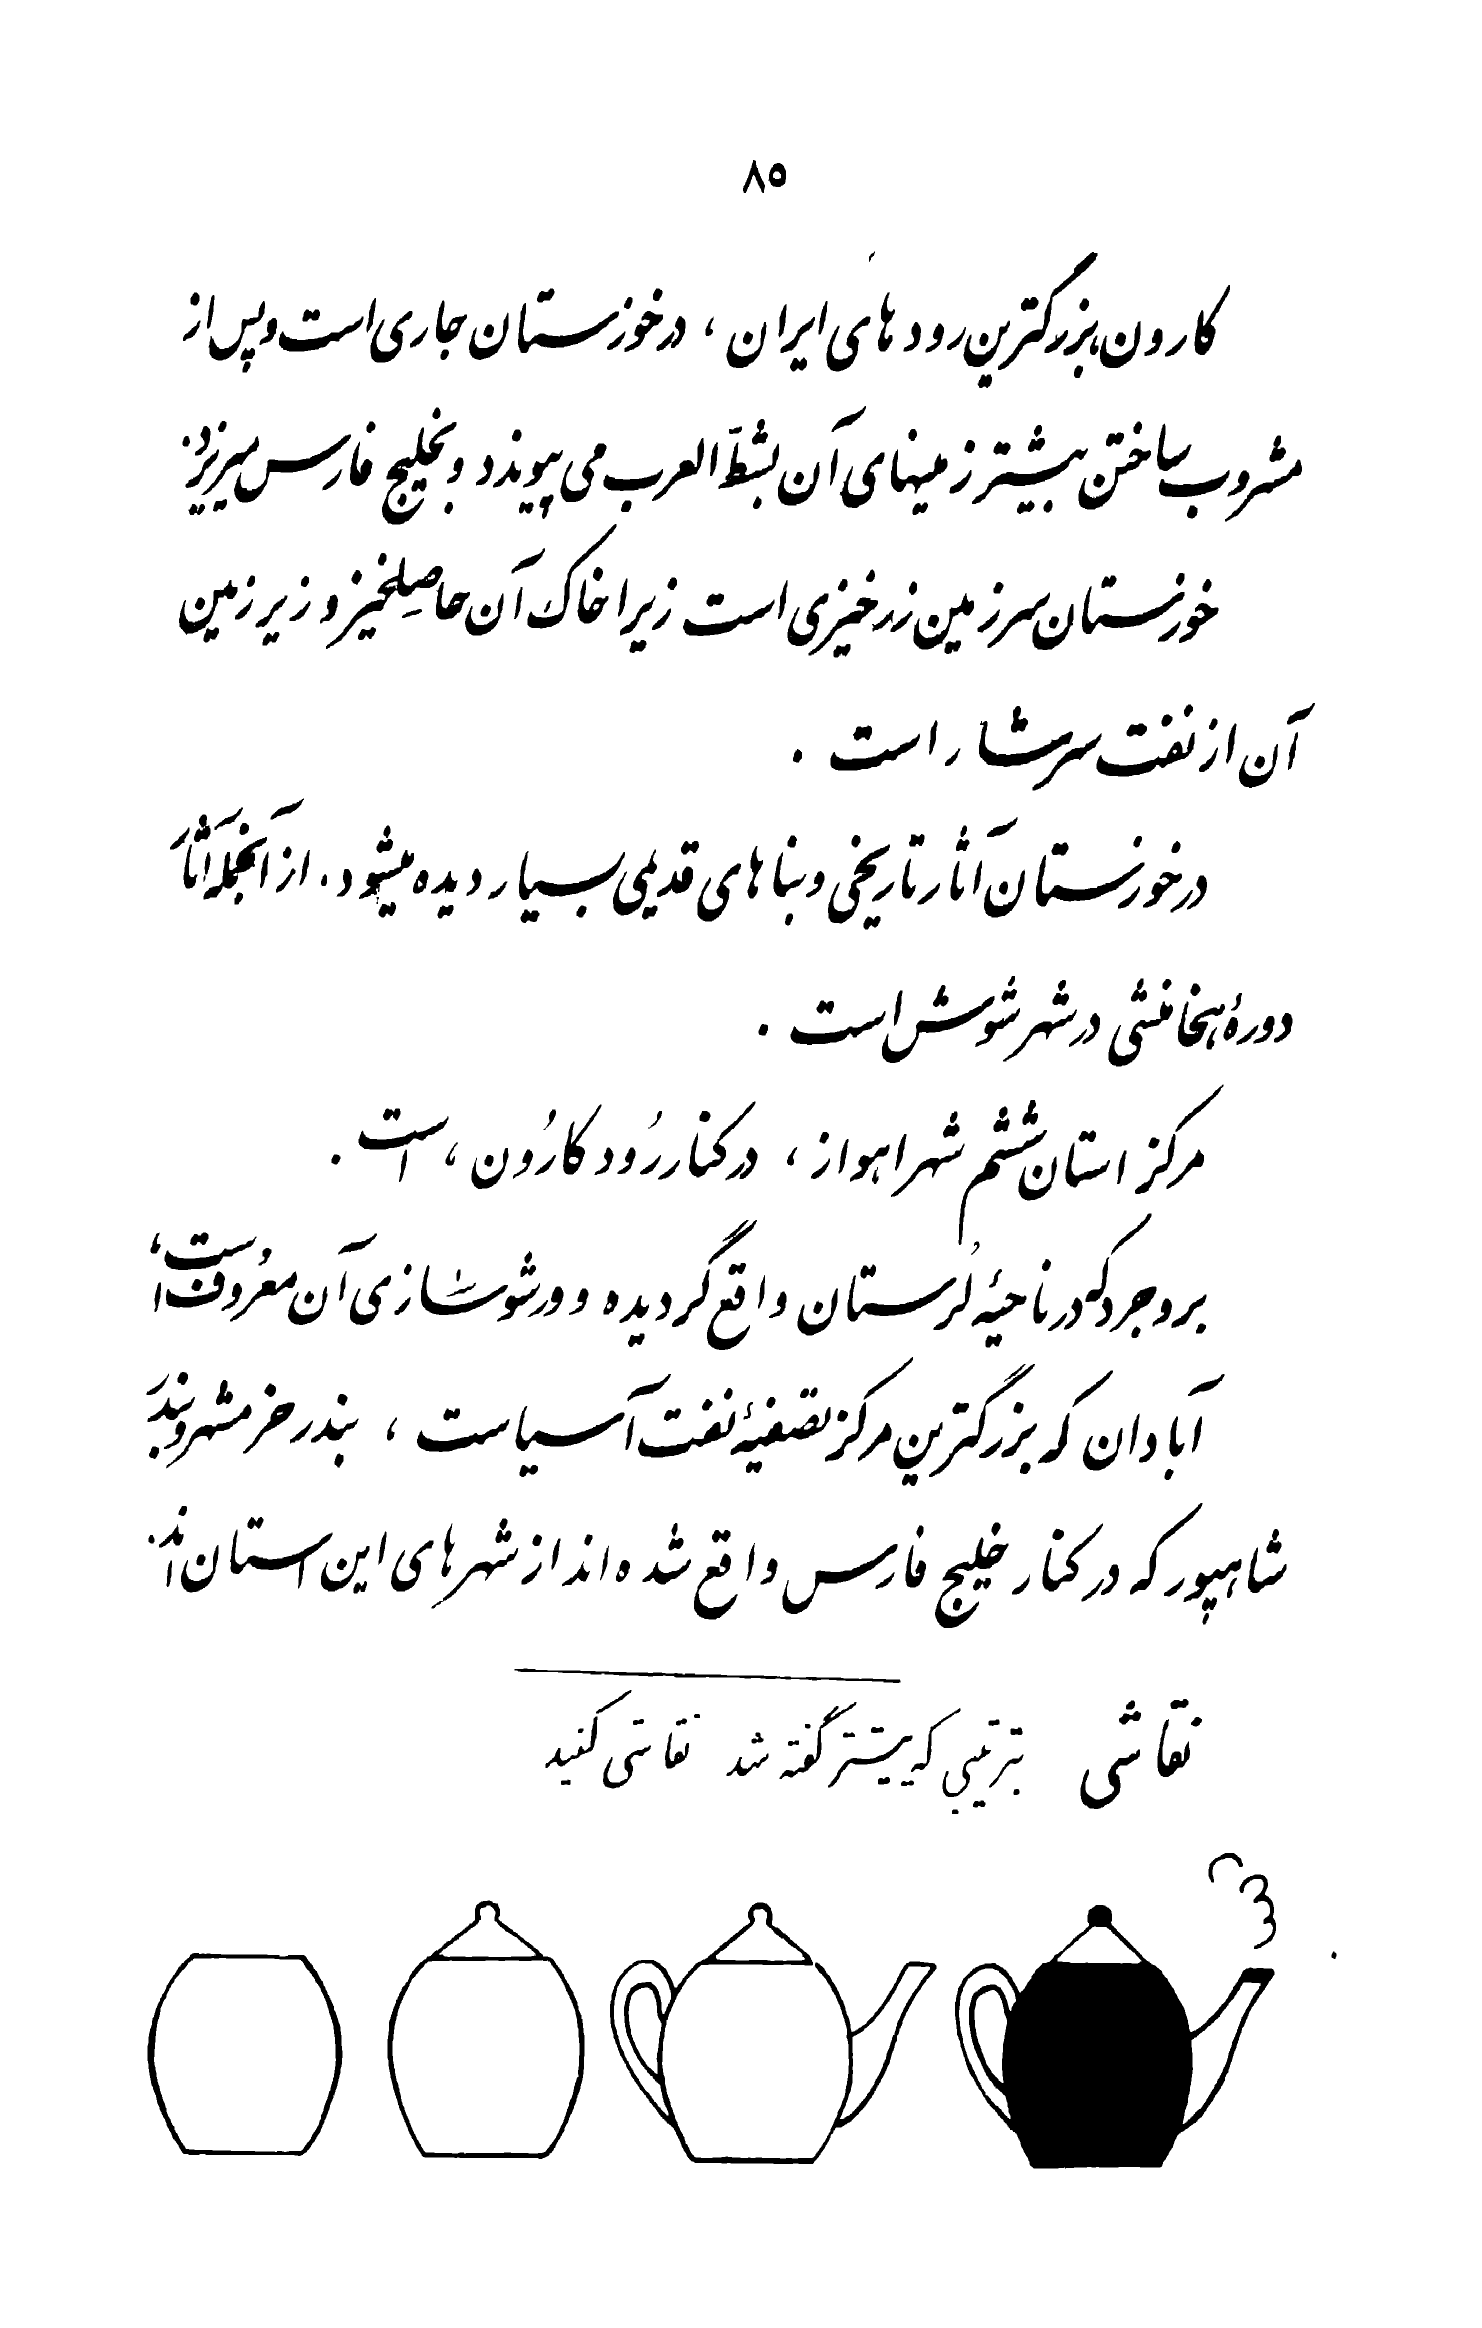 ۸۵
کارون، بزرگترین رودهای ایران، در خوزستان جاری است و پس از
مشروب ساختن بیشتر زمینهای آن بشطّ العرب می پیوندد و بخلیج فارس میریزد.
خوزستان سرزمین زرخیزی است زیرا خاک آن حاصلِخیز و زیر زمین
آن از نفت سرشار است .
در خوزستان آثار تاریخی و بناهای قدیمی بسیار دیده میشود. از آنجمله آثارَ
دورهٔ هخامنشی در شهر شوش است .
مرکز استان ششم شهر اهواز، در کنار رُود کارُون، است .
بروجرد که در ناحیهٔ لُرستان واقع گردیده و ورشوسازی آن معرُوف است،
آبادان که بزرگترین مرکز تصفیهٔ نفت آسیاست ، بندر خرمشهر و بندَر
شاهپور که در کنار خلیج فارس واقع شده اند از شهرهای این استان اند.
نقاشی بترتیبی که پیشتر گفته شد نقاشی کنید